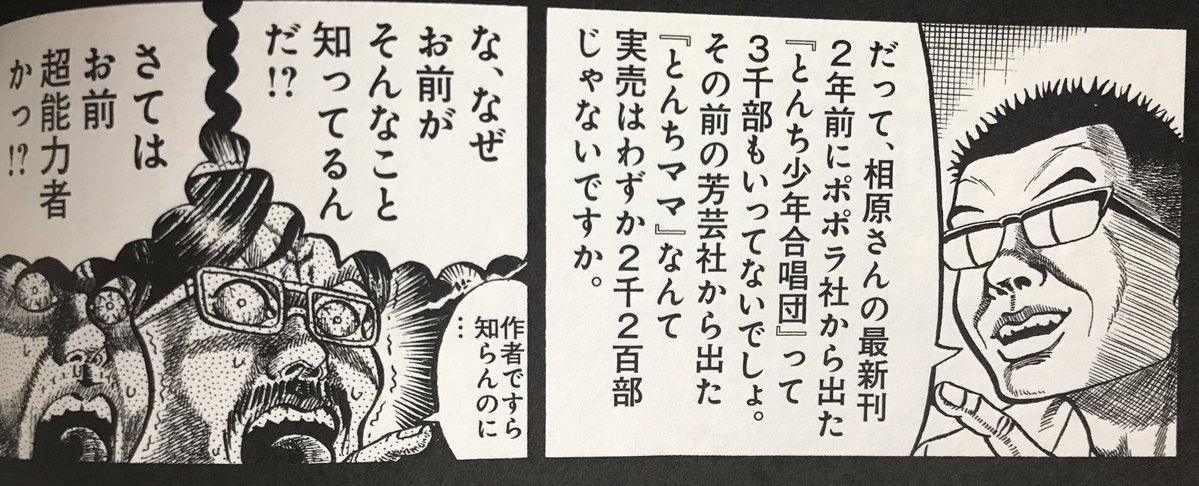 だって、相原さんの最新刊
２年前にポポラ社から出た
『とんち少年合唱団』って
３千部もいってないでしょ。
その前の芳芸社から出た
『とんちママ』なんて
実売はわずか２千２百部
じゃないですか。
な、なぜ
お前が
そんなこと
知ってるん
だ!?
作者ですら
知らんのに
…
さては
お前
超能力者
かっ!?